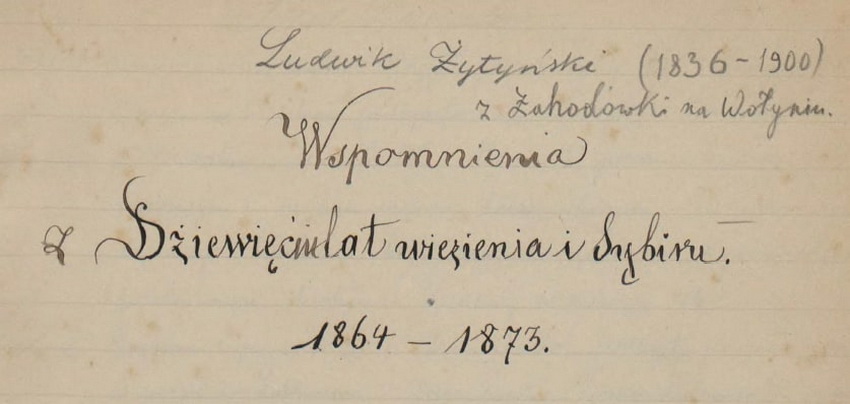 Ludwik Żytyński (1836-1900)
z Zahodówki na Wołyniu.
Wspomnienia
z Dziewięciulat więzienia i Sybiru.
1864 - 1873.